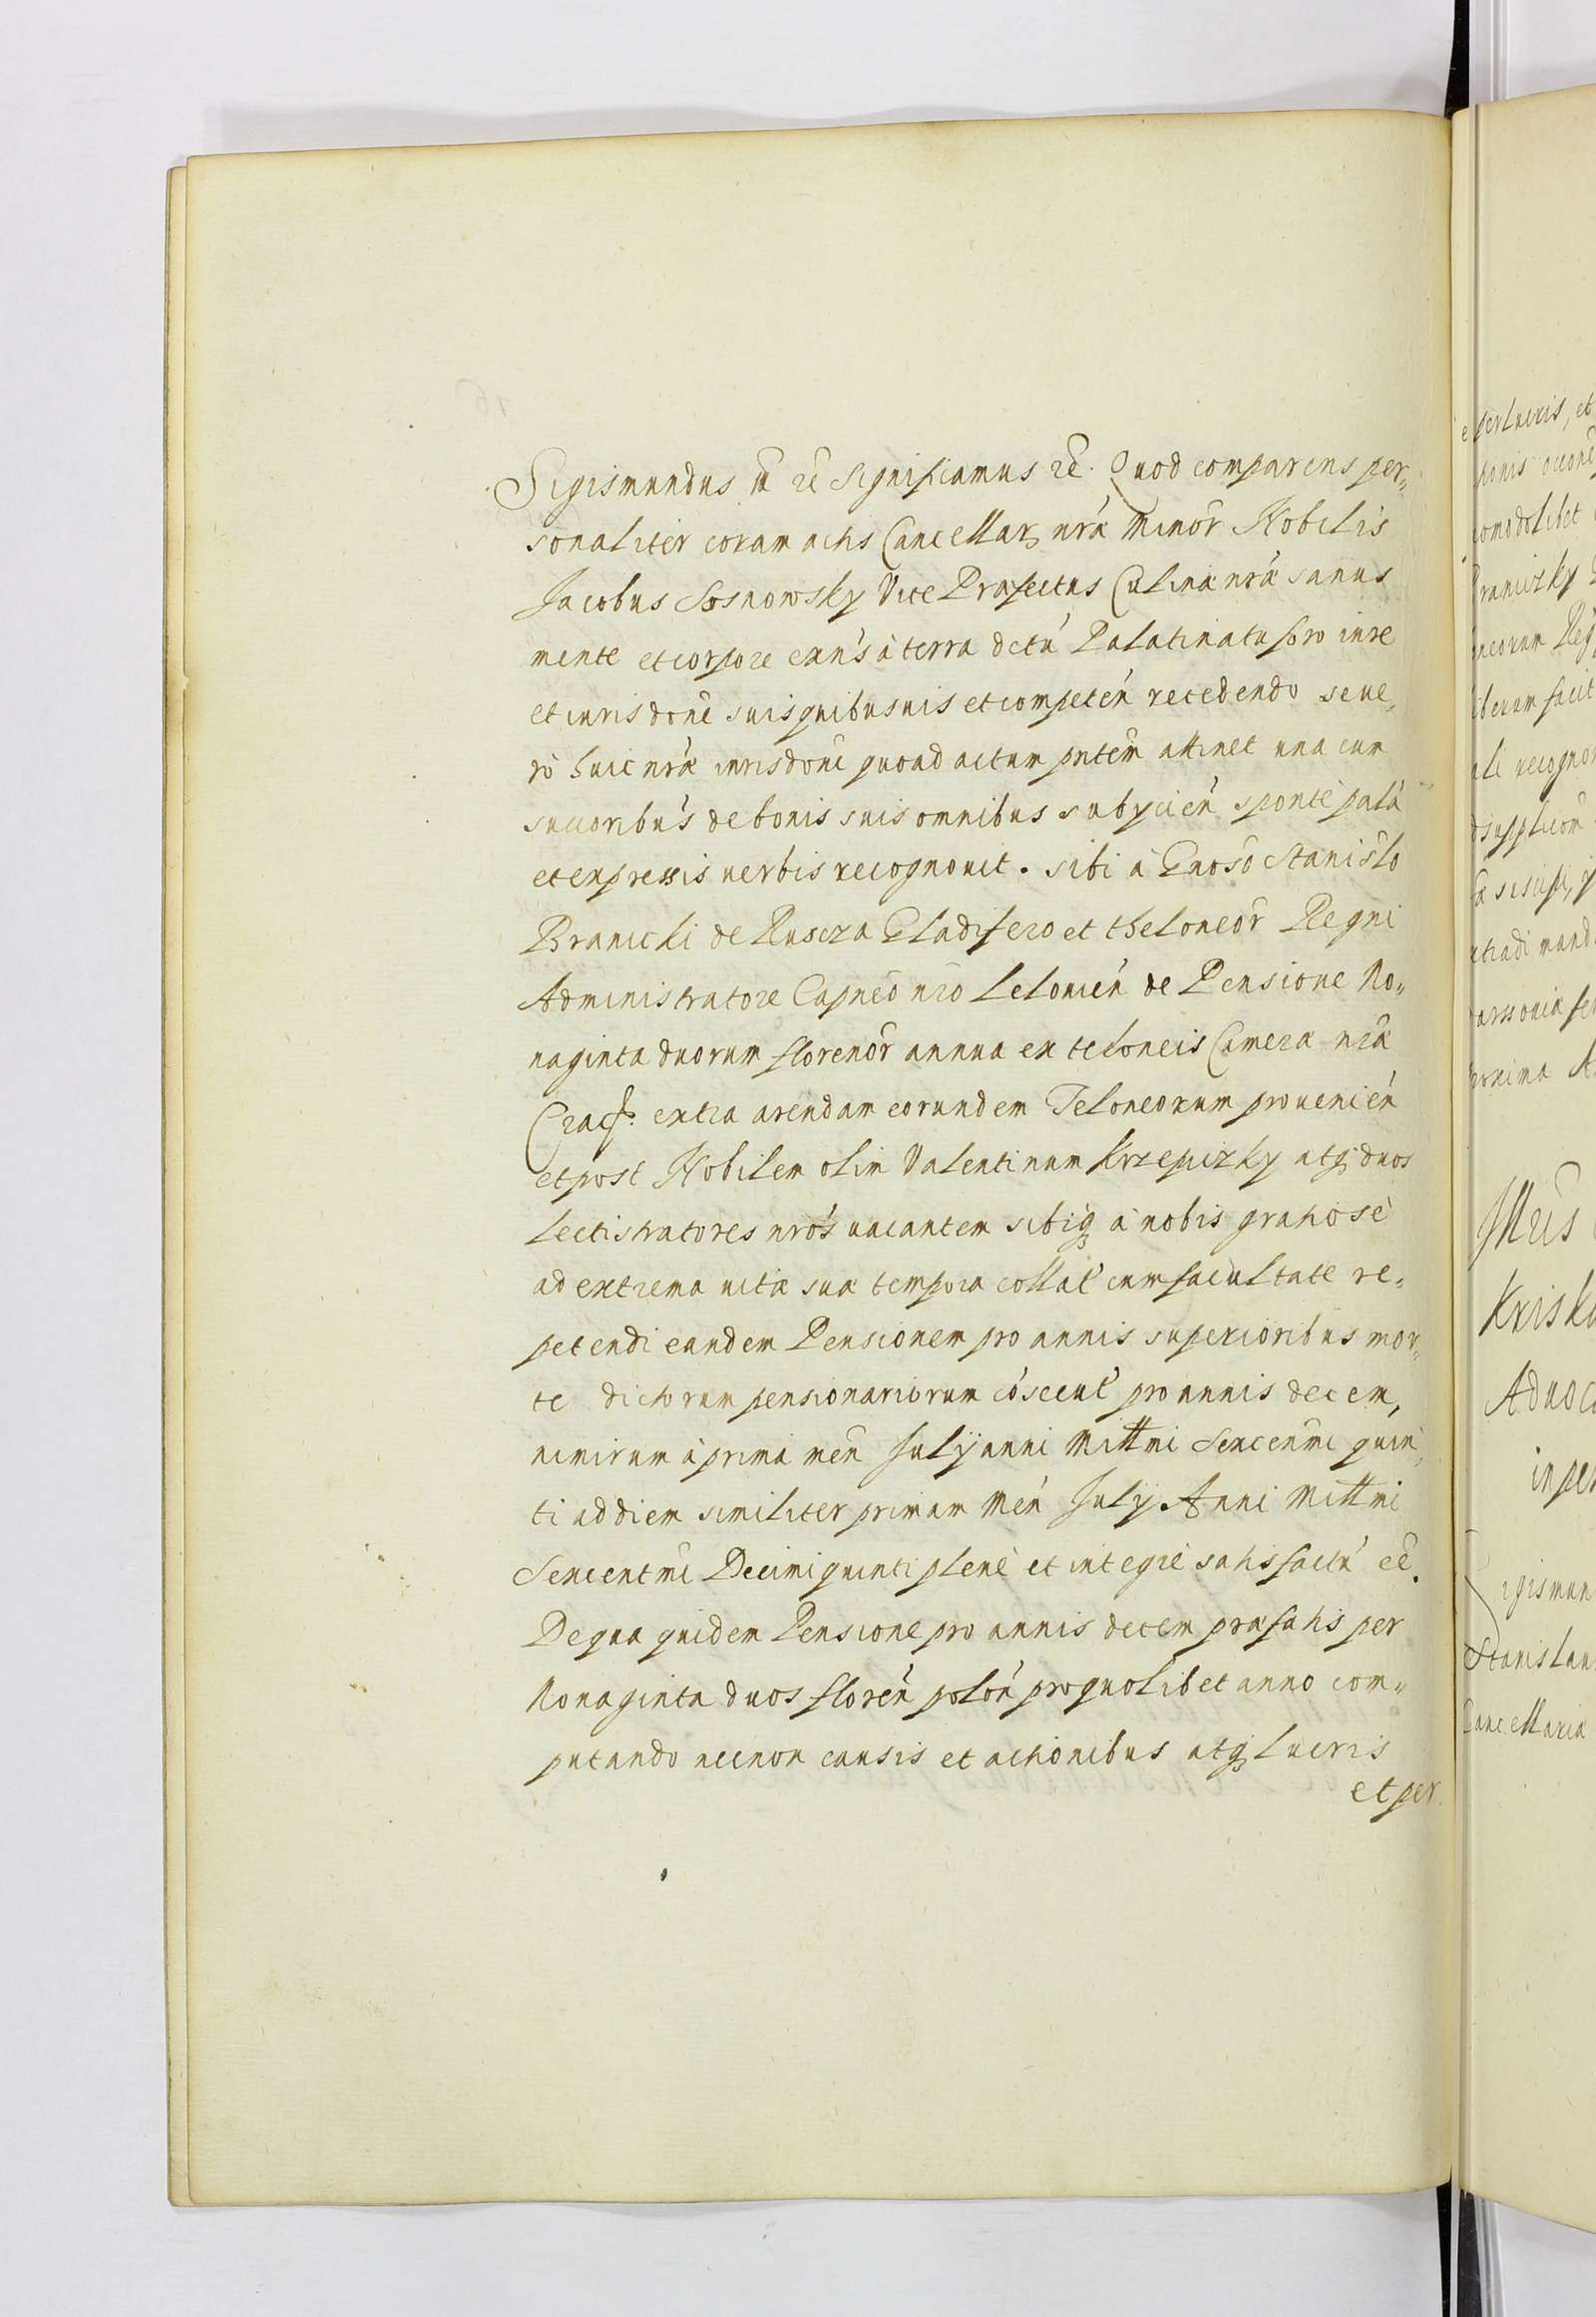 Sigismundus ĩĩ r̃e significamus r̃e. Quod comparens per„
sonaliter coram actis Cancellar₃ nrã Minor̃ Nobilis
Jacobus Sosnowsky Vice Præfectus Culinæ nrã sanus
mente et corpore exńs à terra dctú Palatinatu foro iure
et iurisdoñe suis quibusuis et competeń recedendo seue„
rò huic nrã iurisdoñi quoad actum pñtem attinet una cum
sucioribús de bonis suis omnibus subyicień sponte palá
et expressis uerbis recognouit. sibi à Gnoso Stanislo
Branicki de Ruscza Gladifero et theloneor̃ Regni
Administratore Capneo nr̃o leloniéń de Pensione No„
naginta duorum florenor̃ annua ex teloneis Cameræ nrã
Cracſ. extra arendam eorundem Teloneorum proueniéń
et post Nobilem olim Valentinum Krzepiczky atq₃ duos
Lectistratores nrós uacantem sibiq₃ à nobis gratiosè
ad extrema uitæ suæ tempora collat́ cum facultate re„
petendi eandem Pensionem pro annis superioribus mor„
te dictorum pensionariorum cósecut́ pro annis decem,
nimirum à prima meñ July anni Mittmi Sexcenm̃i quin„
ti ad diem similiter primam Meń July Anni Mittmi
Sexcentm̃i Decimiquinti plenè et integrè satisfactú eẽ.
De qua quidem Pensione pro annis decem præfatis per
Nonaginta duos floreń poloń pro quolibet anno com„
putando necnon causis et actionibus atq₃ lucris
et per
e perlucris, et
Branickÿ
liberum facit
Jllus
Krisk
Aduoc
in per
igismun
Stanislau
Cancellariæ